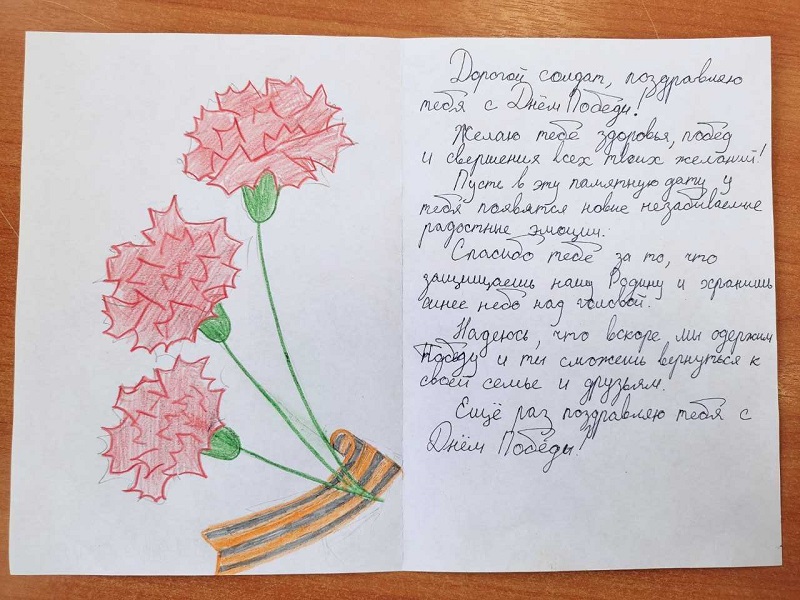 Дорогой солдат, поздравляю
тебя с Днём Победы!
Желаю тебе здоровья, побед
и свершения всех твоих желаний!
Пусть в эту памятную дату у
тебя появятся новые незабываемые
радостные эмоции.
Спасибо тебе за то, что
защищаешь нашу Родину и хранишь
синее небо над головой.
Надеюсь, что вскоре мы одержим
Победу и ты сможешь вернуться к
своей семье и друзьям.
Ещё раз поздравляю тебя с
Днём Победы!